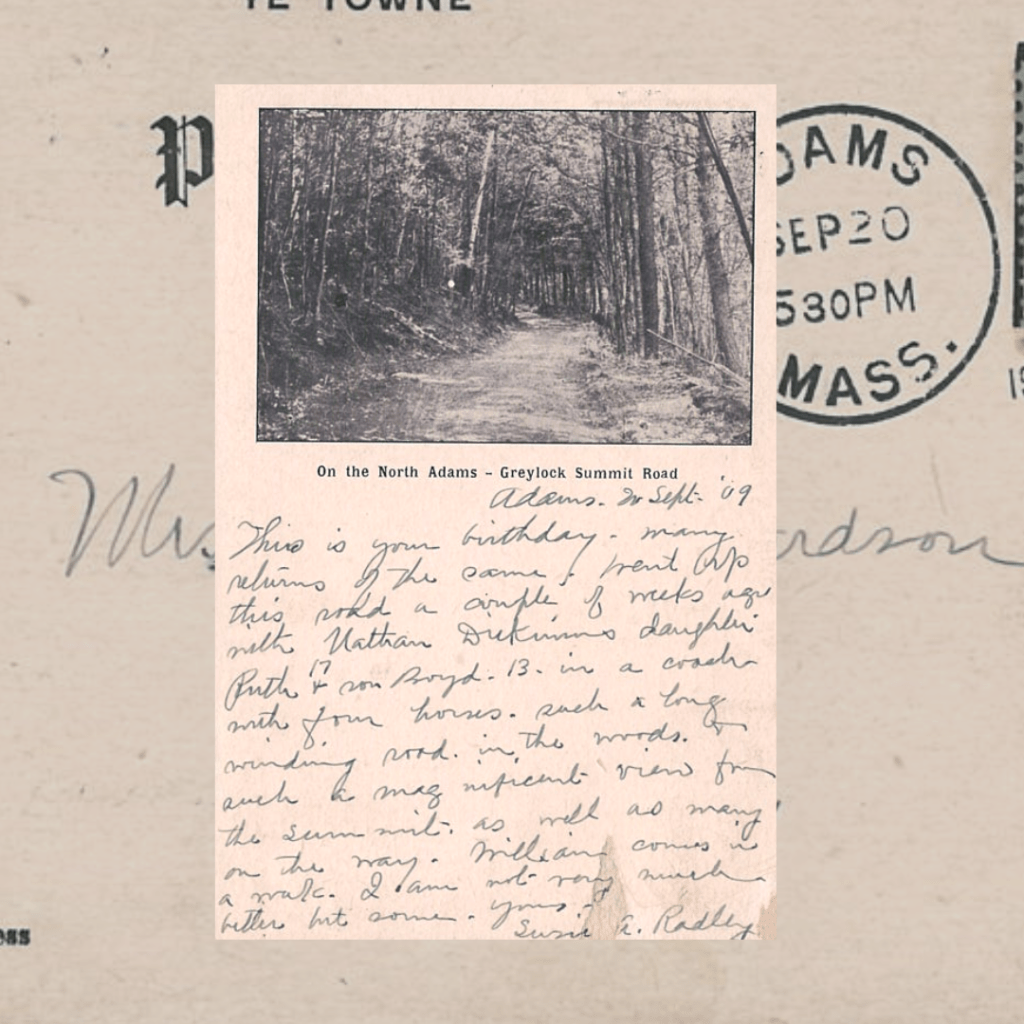 YE TOWNE
P
ADAMS
SEP 20
530PM
MASS.
Mrs
ardson
On the North Adams - Greylock Summit Road
Adams. 20 Sept. '09
This is your birthday. many
returns of the same. I went up
this road a couple of weeks ago
with Nathan Dickinsons daughter
Ruth 17 & son Boyd. 13. in a coach
with four horses. such a long
winding road. in the woods. &
such a magnificent view from
the summit. as well as many
on the way. William comes in
a walk. I am not very much
better but some. yours -
Susie A. Radley